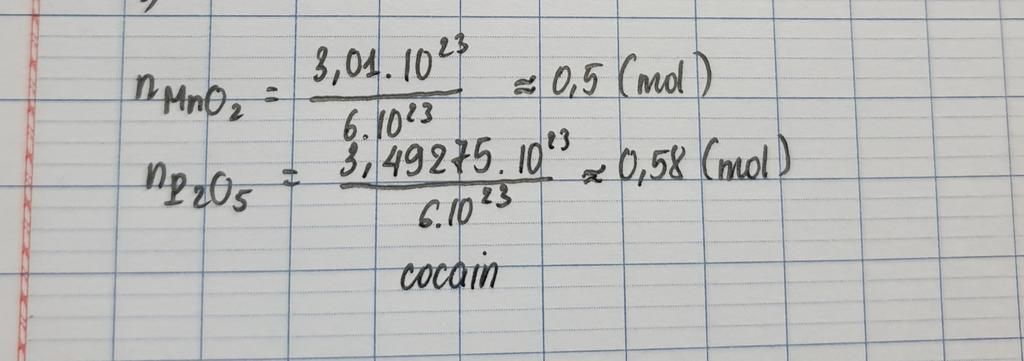 n_MnO₂ = 3,01.10²³ / 6.10²³ ≈ 0,5 (mol)
n_P₂O₅ = 3,49275.10²³ / 6.10²³ ≈ 0,58 (mol)
cocain